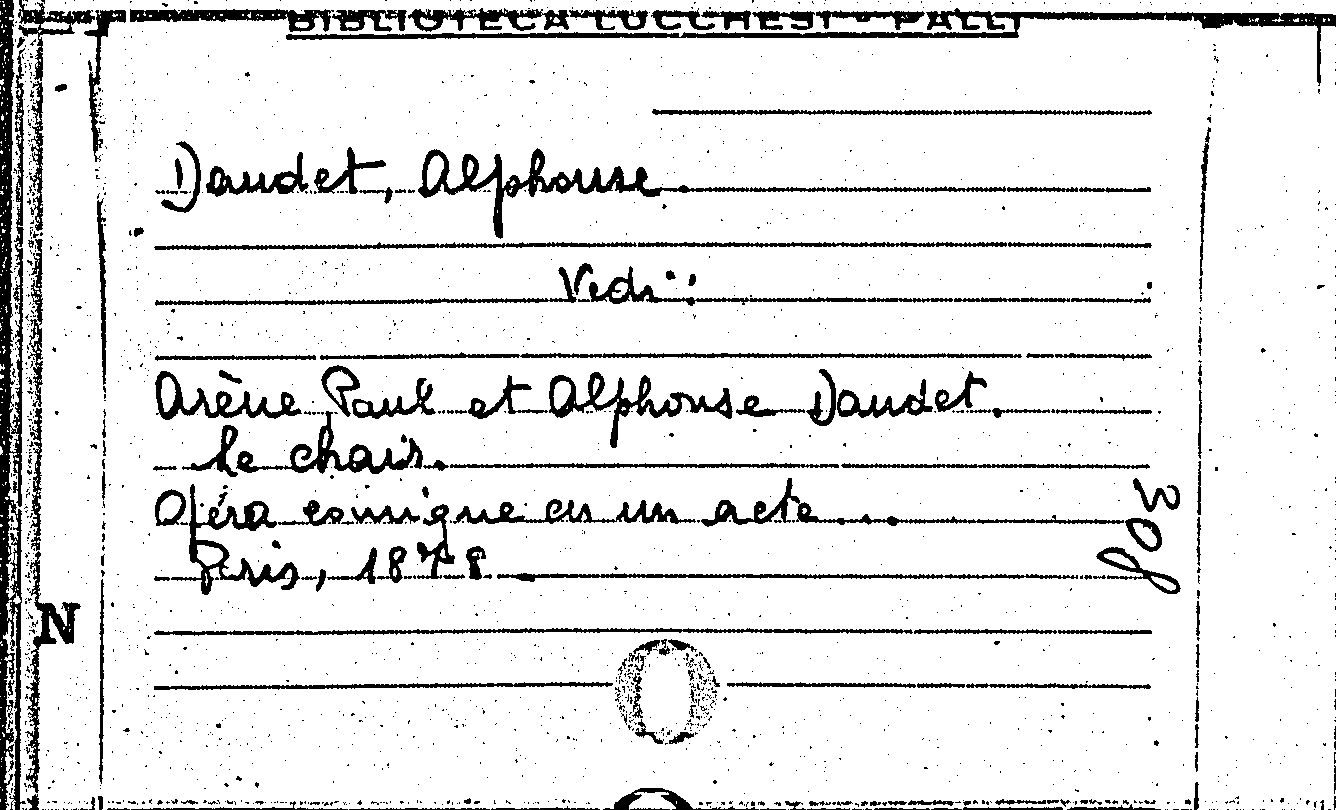 BIBLIOTECA LUCCHESI - PALLI
Daudet, Alphonse.
Vedi:
Arène Paul et Alphonse Daudet.
Le chair.
Opéra comique en un acte...
Paris, 1878.
N